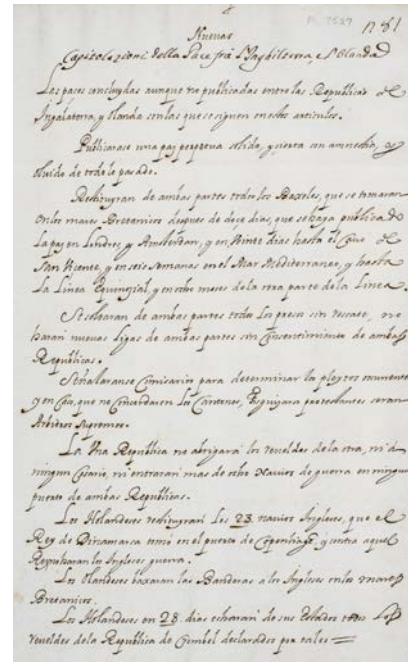 Nuevas
Capitolazioni della Pace frà l'Inghilterra, e l'Olanda
Las pazes concluydas aunque no publicadas entre las Republicas de
Ingalaterra, y Olanda son las que se siguen en estos articulos.
Publicarase una paz perpetua solida, y cierta con amnestia, y
olvido de todo lo pasado.
Restituyran de ambas partes todos los Baxeles, que se tomaran
en los mares Bretanicos despues de doçe dias, que se haya publicado
la paz en Londres, y Amsterdam, y en Veinte dias hasta el Cavo de
San Vicente, y en seis semanas en el Mar Mediterraneo, y hasta
La Linea Equinozial, y en ocho meses de la otra parte de la Linea.
Se soltaran de ambas partes todos los presos sin rescate, no
haran nuevas Ligas de ambas partes sin consentimiento de ambas
Republicas.
Señallaranse Comisarios para determinar los pleytos
y en caso, que no concordaren los Cantones, Esguizaros protestantes seran
Arbitros supremos.
La Una Republica no abrigara los reveldes de la otra, ni à
ningun Cosario, ni entraran mas de ocho Navios de guerra en ningun
puerto de ambas Republicas.
Los Holandeses restituyran los 23. navios Ingleses, que el
Rey de Dinamarca tomó en el puerto de y contra aquel
los Ingleses guerra.
Los Olandeses baxaran las Banderas a los Ingleses en los mares
Bretanicos.
Los Holandeses en 28. dias echaran de sus Estados todos los
reveldes de la Republica de declarados por tales